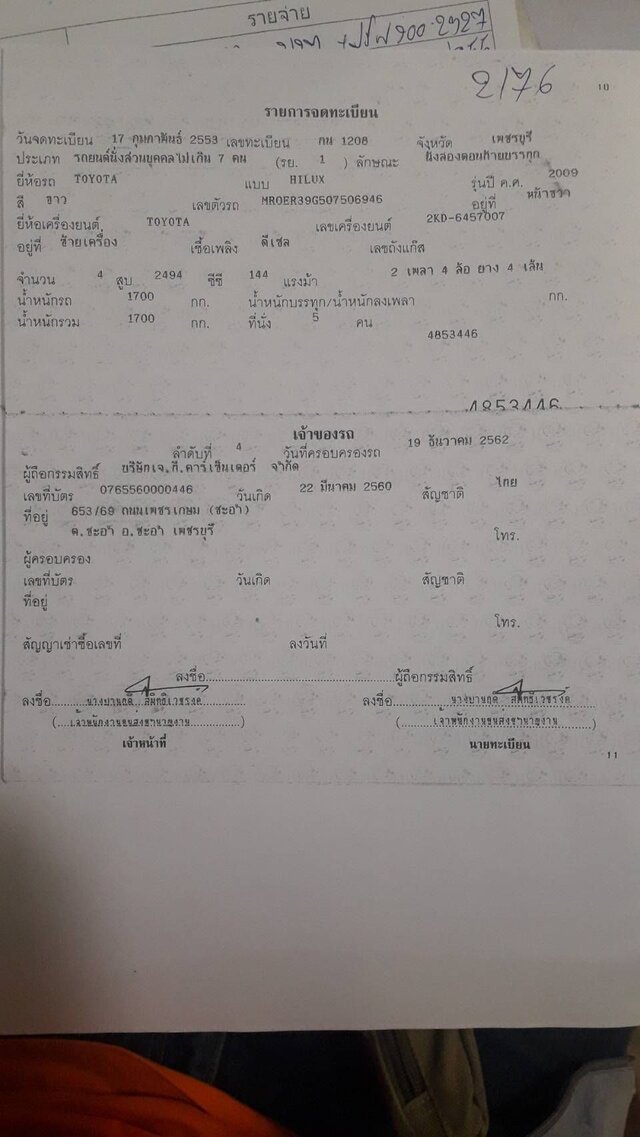 รายจ่าย
900.2927
2/76
10
รายการจดทะเบียน
วันจดทะเบียน 17 กุมภาพันธ์ 2553 เลขทะเบียน กน 1208 จังหวัด เพชรบุรี
ประเภท รถยนต์นั่งส่วนบุคคลไม่เกิน 7 คน (รย. 1 ) ลักษณะ นั่งสองตอนท้ายบรรทุก
ยี่ห้อรถ TOYOTA แบบ HILUX รุ่นปี ค.ศ. 2009
สี ขาว เลขตัวรถ MROER39G507506946 อยู่ที่ หน้าขวา
ยี่ห้อเครื่องยนต์ TOYOTA เลขเครื่องยนต์ 2KD-6457007
อยู่ที่ ซ้ายเครื่อง เชื้อเพลิง ดีเซล เลขถังแก๊ส
จำนวน 4 สูบ 2494 ซีซี 144 แรงม้า 2 เพลา 4 ล้อ ยาง 4 เส้น
น้ำหนักรถ 1700 กก. น้ำหนักบรรทุก/น้ำหนักลงเพลา กก.
น้ำหนักรวม 1700 กก. ที่นั่ง 5 คน
4853446
4853446
เจ้าของรถ
ลำดับที่ 4 วันที่ครอบครองรถ 19 ธันวาคม 2562
ผู้ถือกรรมสิทธิ์ บริษัทเจ.ที.คาร์เซ็นเตอร์ จำกัด
เลขที่บัตร 0765560000446 วันเกิด 22 มีนาคม 2560 สัญชาติ ไทย
ที่อยู่ 653/69 ถนนเพชรเกษม (ชะอำ)
ต.ชะอำ อ.ชะอำ เพชรบุรี
โทร.
ผู้ครอบครอง
เลขที่บัตร วันเกิด สัญชาติ
ที่อยู่
โทร.
สัญญาเช่าซื้อเลขที่ ลงวันที่
ลงชื่อ ผู้ถือกรรมสิทธิ์
ลงชื่อ ลงชื่อ
(เจ้าพนักงานขนส่งชำนาญงาน) (เจ้าพนักงานขนส่งชำนาญงาน)
เจ้าหน้าที่ นายทะเบียน
11